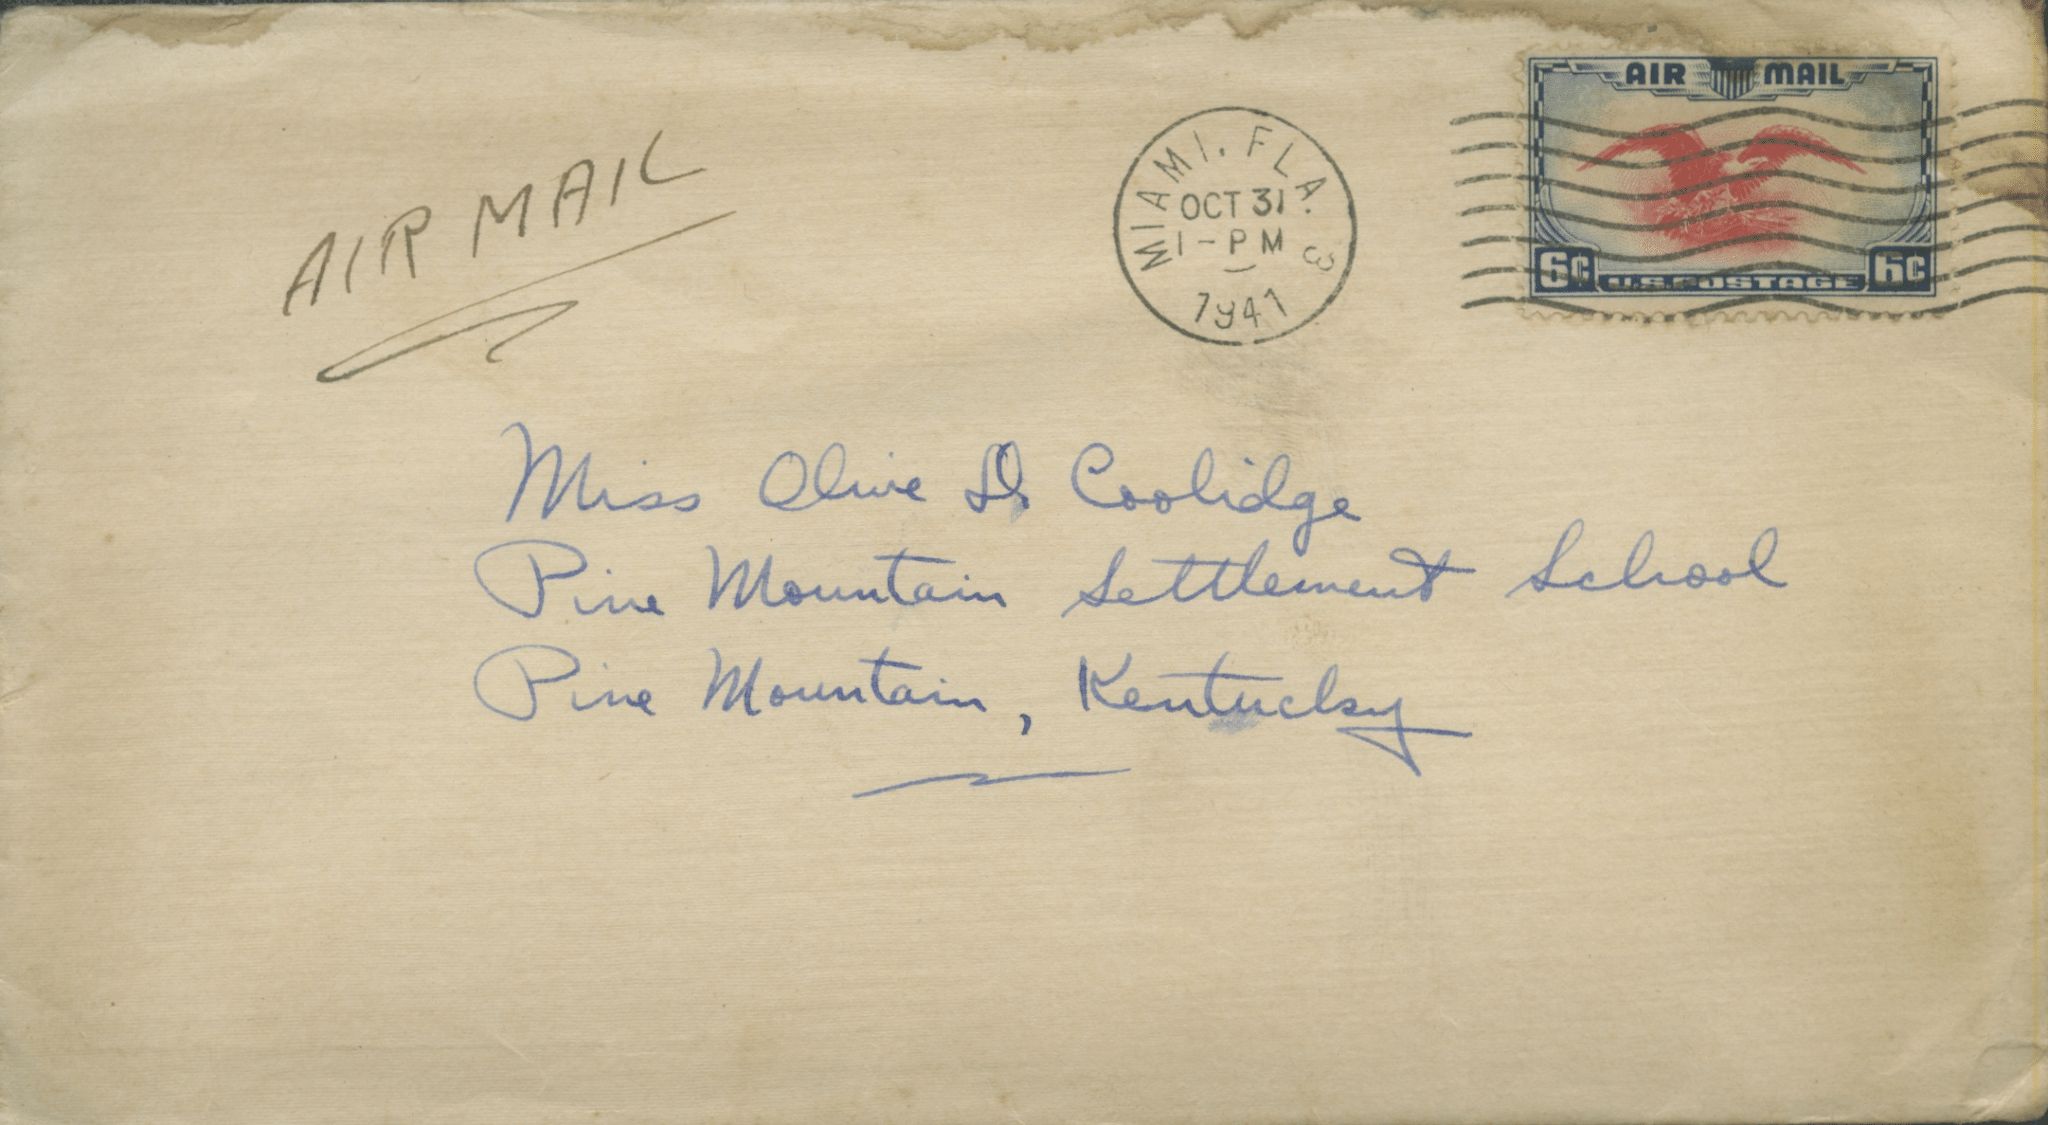 AIR MAIL
6¢ U.S. POSTAGE 6¢
MIAMI, FLA. 3
OCT 31
1-PM
1941
AIR MAIL
Miss Olive D. Coolidge
Pine Mountain Settlement School
Pine Mountain, Kentucky